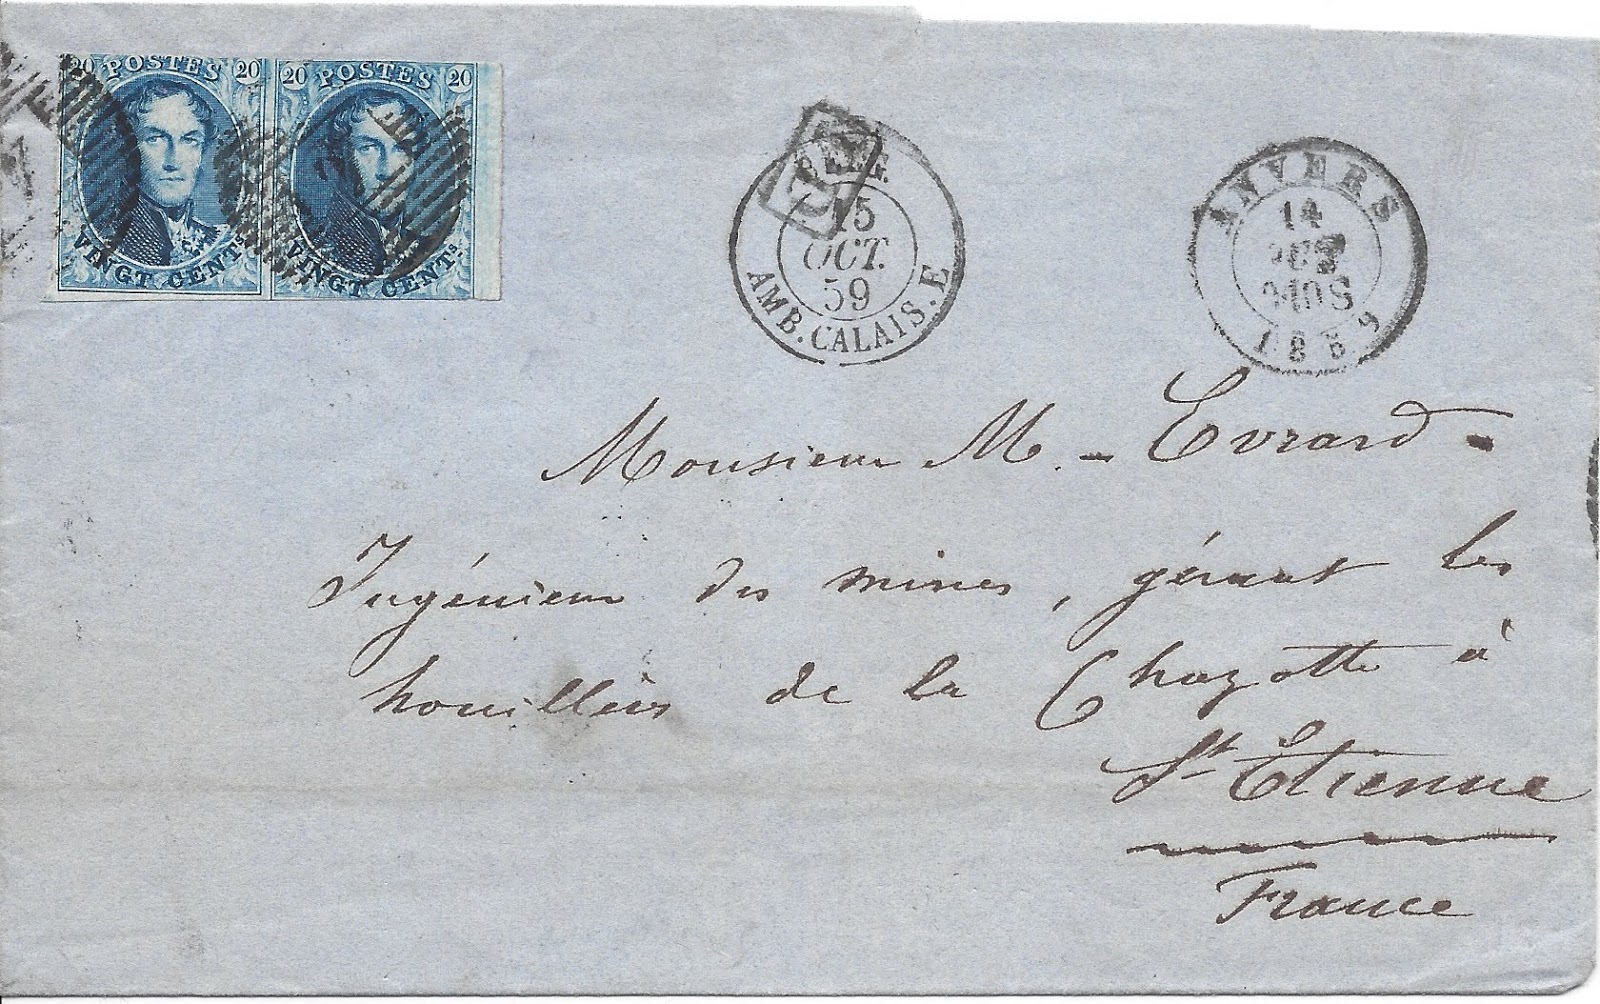 20 POSTES 20 20 POSTES 20
VINGT CENTS VINGT CENTS
PD
BELG.
15
OCT.
59
AMB. CALAIS. E
ANVERS
14
OCT
1859
Monsieur M. - Evrard -
Ingénieur des mines, gérant les
houillères de la Chazotte à
St Etienne
France